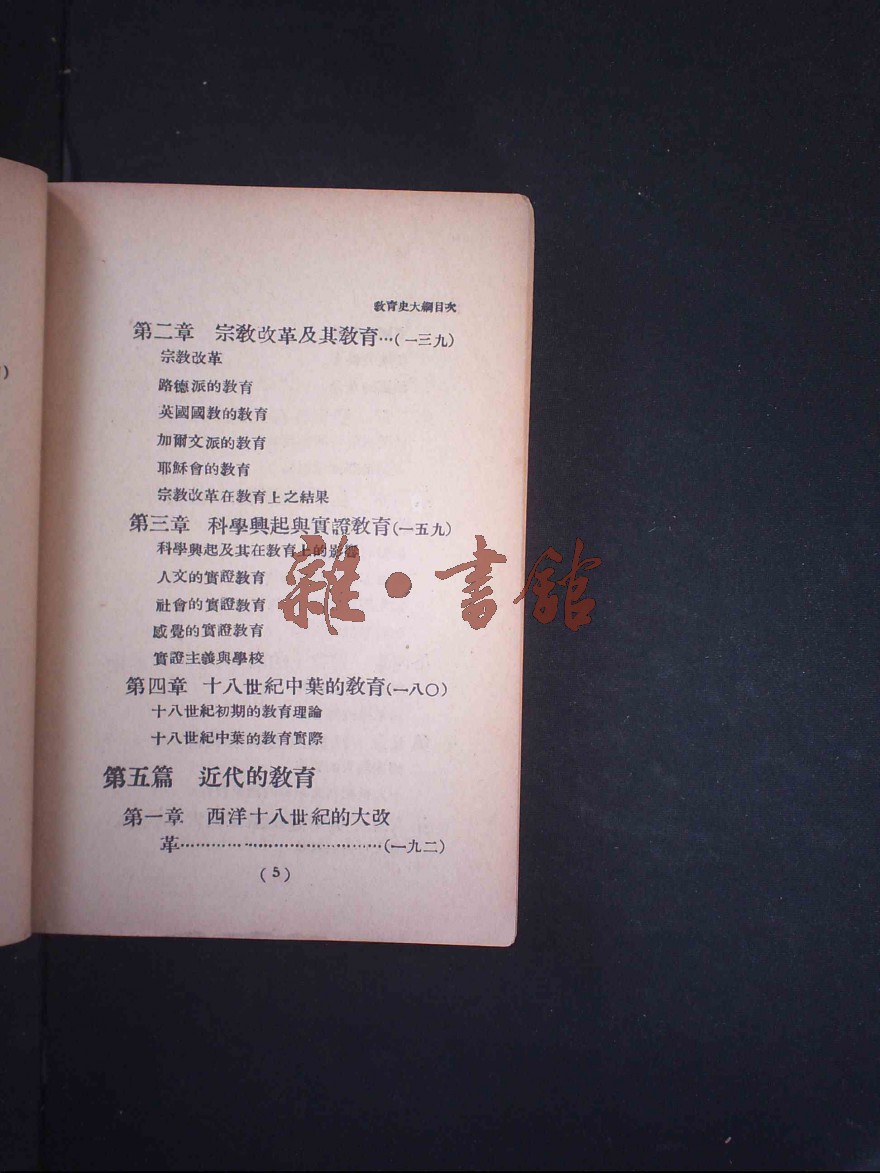 教育史大綱目次
第二章 宗教改革及其教育…(一三九)
宗教改革
路德派的教育
英國國教的教育
加爾文派的教育
耶穌會的教育
宗教改革在教育上之結果
第三章 科學興起與實證教育(一五九)
科學興起及其在教育上的影響
人文的實證教育
社會的實證教育
感覺的實證教育
實證主義與學校
第四章 十八世紀中葉的教育(一八〇)
十八世紀初期的教育理論
十八世紀中葉的教育實際
第五篇 近代的教育
第一章 西洋十八世紀的大改
革……………………………(一九二)
(5)
)
雜·書館